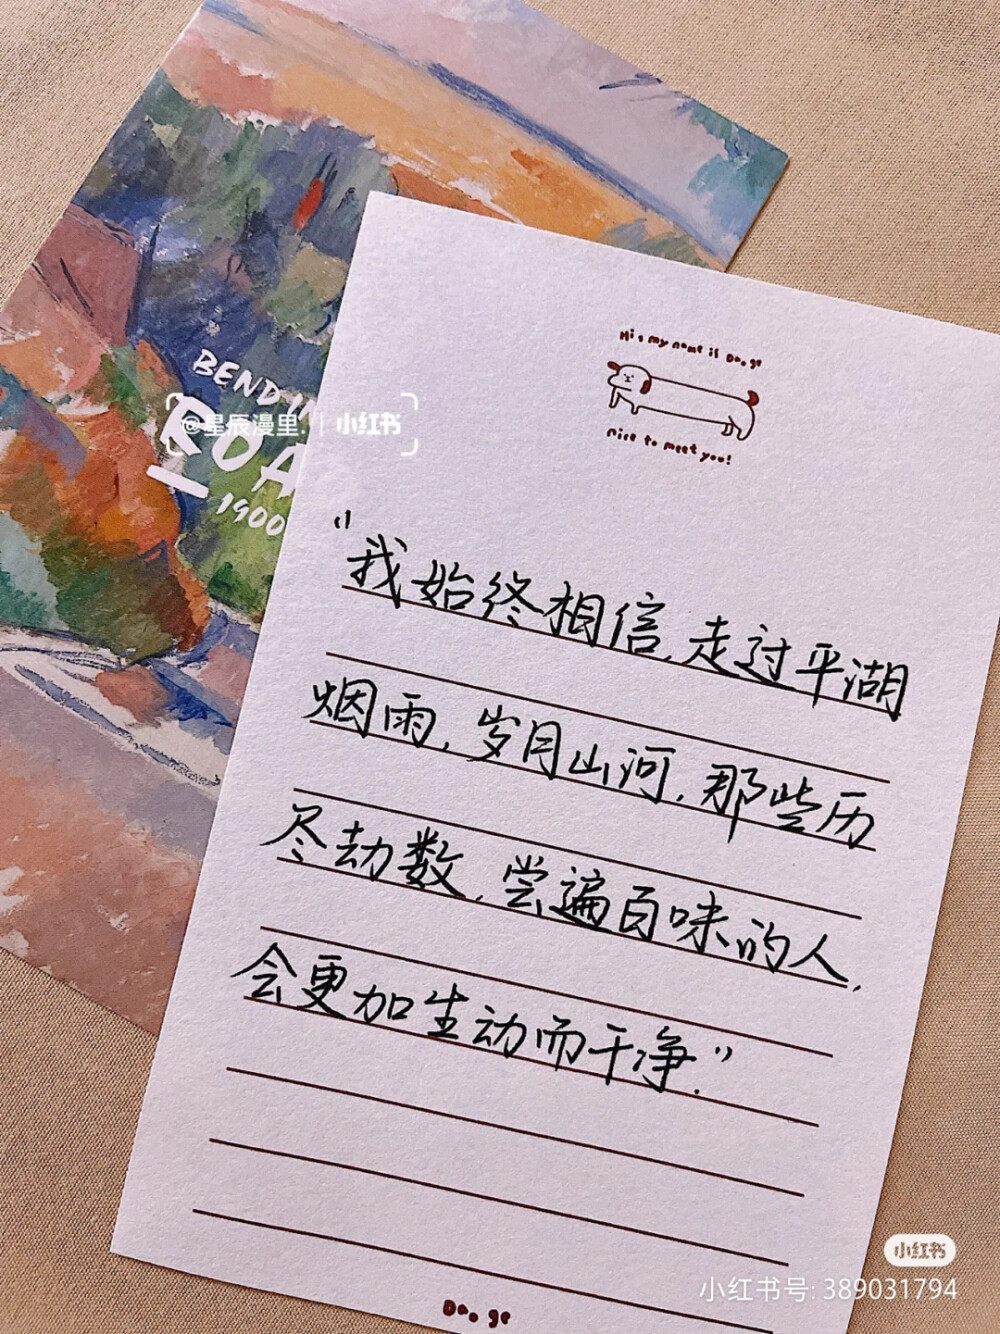 BENDI
ROA
1900
@星辰漫里. 小红书
Hi, my name is Dooge
nice to meet you!
"我始终相信,走过平湖
烟雨,岁月山河,那些历
尽劫数,尝遍百味的人,
会更加生动而干净."
小红书
小红书号: 389031794